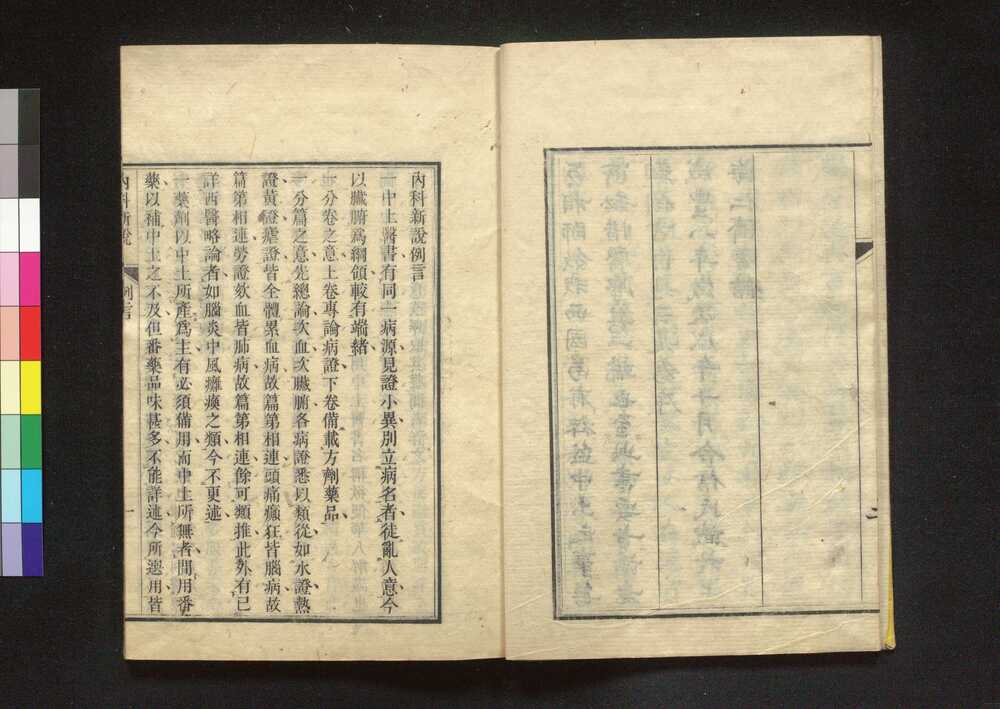 二
內科新說例言
一中土醫書有同一病源見證小異別立病名者徒亂人意今
以臟腑爲綱領較有端緒
一分卷之意上卷專論病證下卷備載方劑藥品
一分篇之意先總論次血次臟腑各病證悉以類從如水證熱
證黃證瘧證皆全體累血病故篇第相連頭痛癲狂皆腦病故
篇第相連勞證欬血皆肺病故篇第相連餘可類推此外有已
詳西醫略論者如腦炎中風癱瘓之類今不更述
一藥劑以中土所產爲主有必須備用而中土所無者間用番
藥以補中土之不及但番藥品味甚多不能詳述今所選用皆
內科新說 例言 一